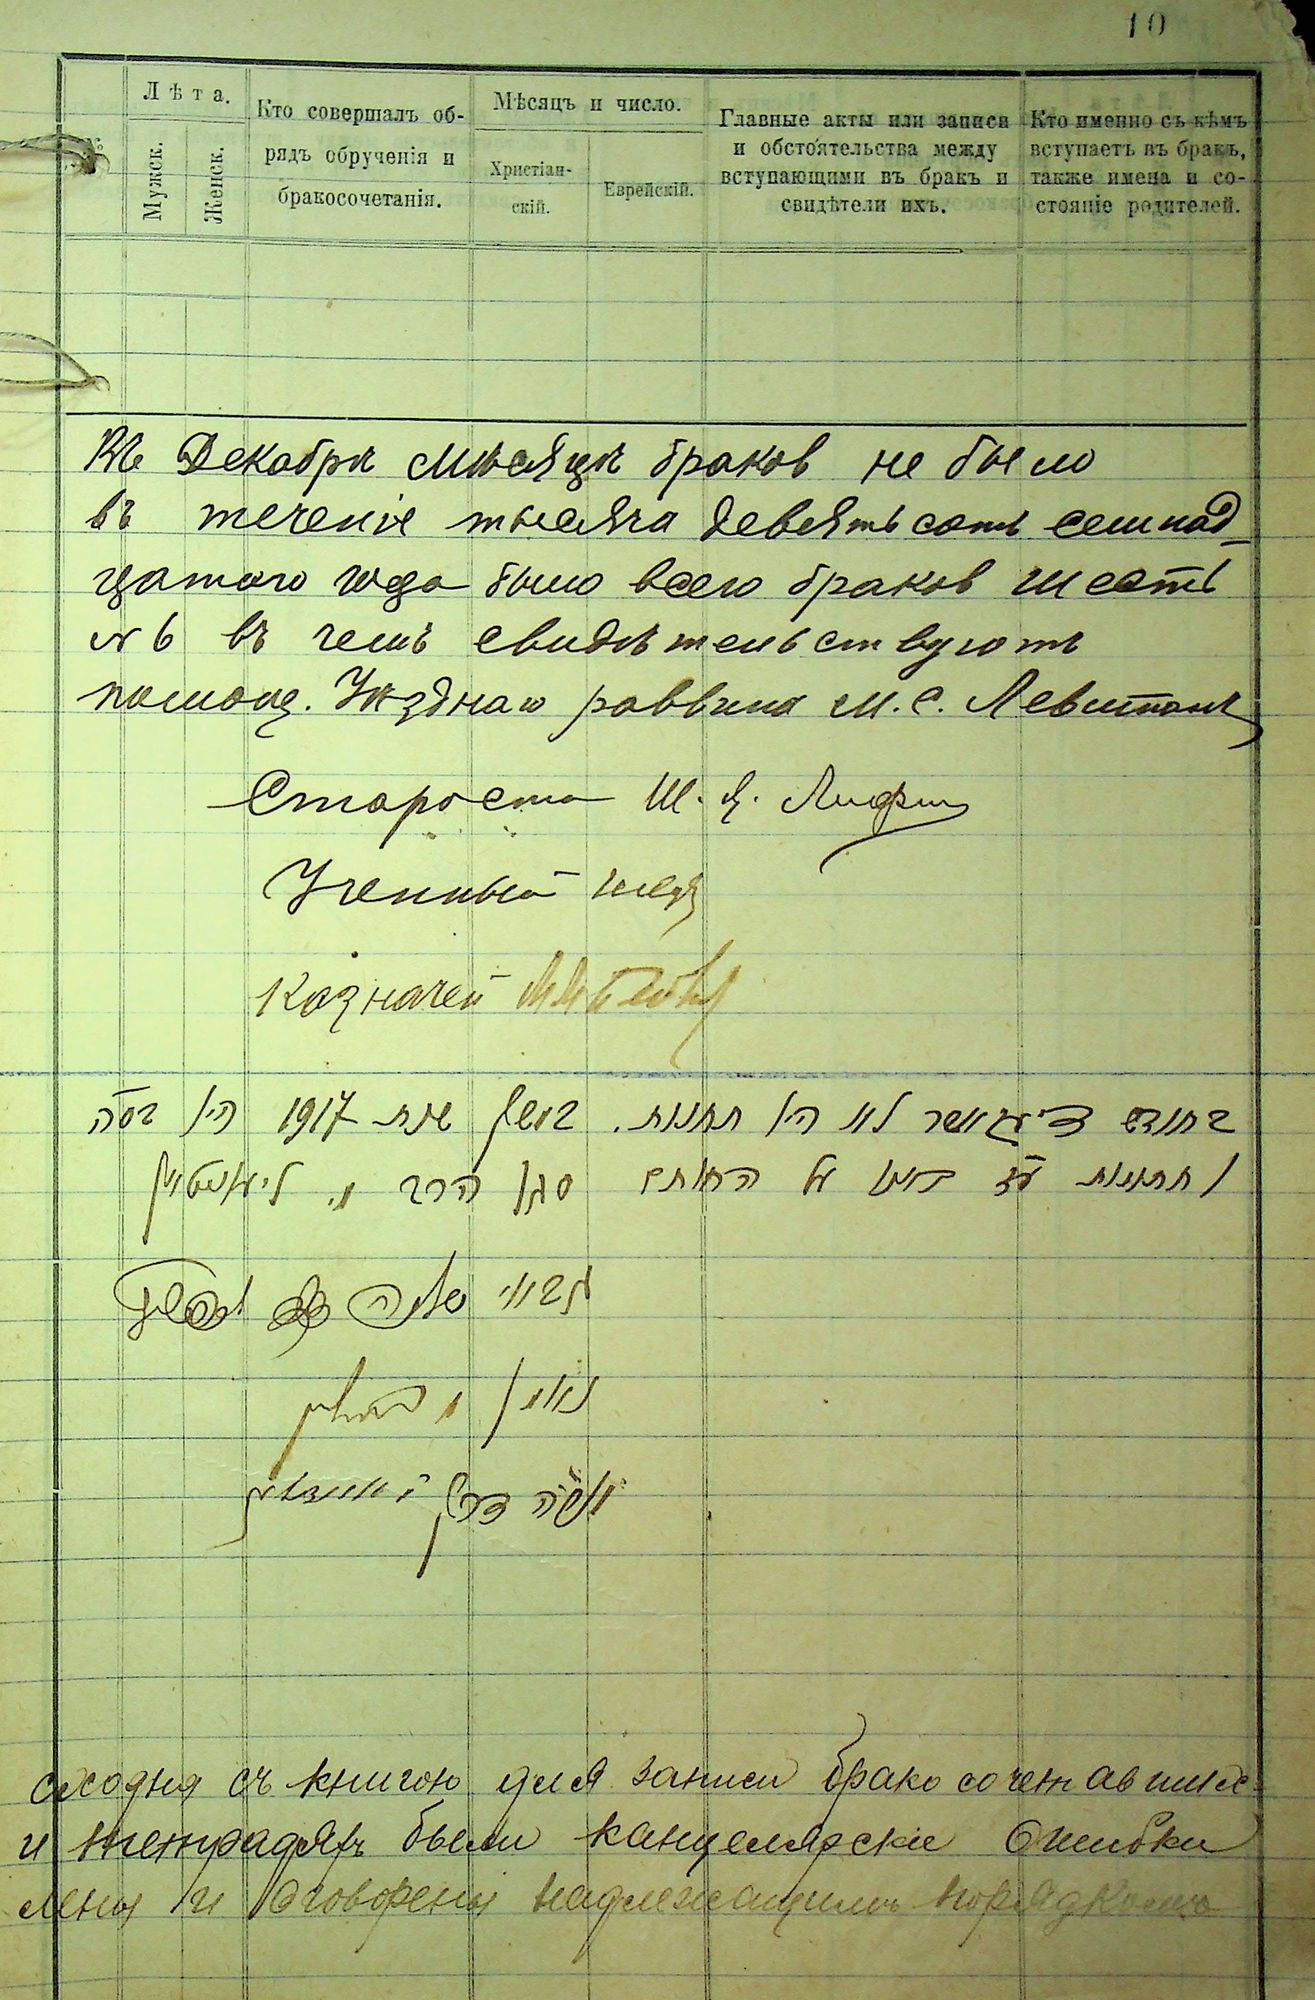 10
№
Лѣта.
Мужск.
Женск.
Кто совершалъ об-
рядъ обрученія и
бракосочетанія.
Мѣсяцъ и число.
Христіан-
скій.
Еврейскій.
Главные акты или записи
и обстоятельства между
вступающими въ бракъ и
свидѣтели ихъ.
Кто именно съ кѣмъ
вступаетъ въ бракъ,
также имена и со-
стояніе родителей.
Въ Декабрѣ мѣсяцѣ браков не было
въ теченіе тысяча девятьсотъ семнад-
цатого года было всего браков шесть
№ 6 въ чемъ свидѣтельствуютъ
помощ. Уѣзднаго раввина М. С. Левитанъ
Староста Ш.
Ученный
Казначей
בחודש דיעצעמבר לא היו חתונות. במשך שנת 1917 היו בסה
ו חתונות עז באנו על החתום סגן הרב
גבאי
נאמן
сходна съ книгою для записи бракосочетавших
и тетрадяхъ были канцелярскіе ошибки
лены и оговорены надлежащимъ порядкомъ